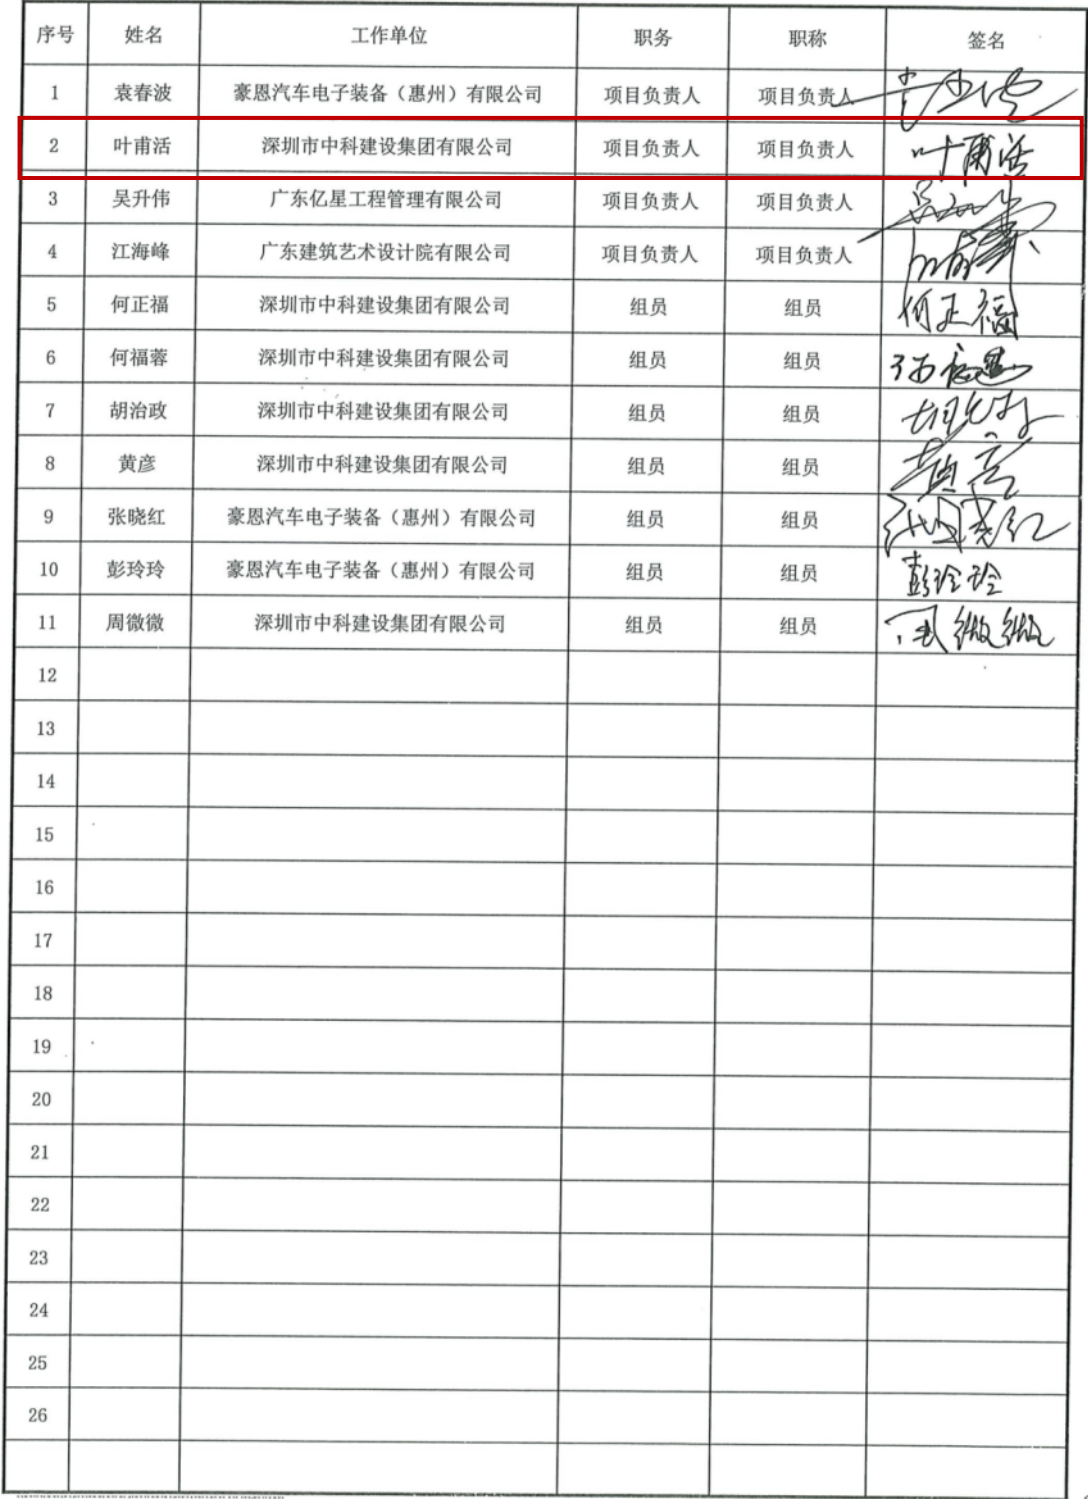 序号 姓名 工作单位 职务 职称 签名
1 袁春波 豪恩汽车电子装备（惠州）有限公司 项目负责人 项目负责人
2 叶甫活 深圳市中科建设集团有限公司 项目负责人 项目负责人 叶甫活
3 吴升伟 广东亿星工程管理有限公司 项目负责人 项目负责人
4 江海峰 广东建筑艺术设计院有限公司 项目负责人 项目负责人
5 何正福 深圳市中科建设集团有限公司 组员 组员 何正福
6 何福蓉 深圳市中科建设集团有限公司 组员 组员
7 胡治政 深圳市中科建设集团有限公司 组员 组员
8 黄彦 深圳市中科建设集团有限公司 组员 组员 黄彦
9 张晓红 豪恩汽车电子装备（惠州）有限公司 组员 组员 张晓红
10 彭玲玲 豪恩汽车电子装备（惠州）有限公司 组员 组员 彭玲玲
11 周微微 深圳市中科建设集团有限公司 组员 组员 周微微
12
13
14
15
16
17
18
19
20
21
22
23
24
25
26